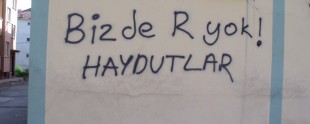 Bizde R yok!
HAYDUTLAR